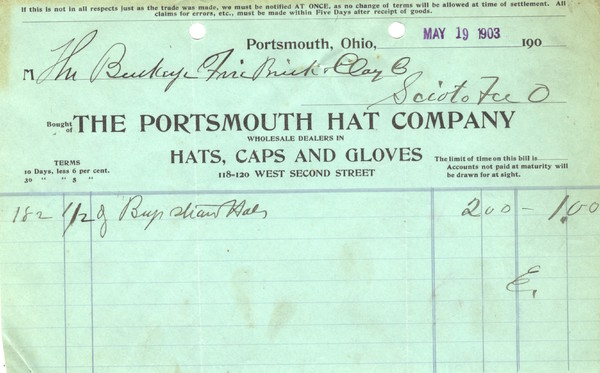 If this is not in all respects just as the trade was made, we must be notified AT ONCE, as no change of terms will be allowed at time of settlement. All
claims for errors, etc., must be made within Five Days after receipt of goods.
Portsmouth, Ohio, MAY 19 1903 190
M The Buckeye Fire Brick & Clay Co
Scioto Fce O
Bought of THE PORTSMOUTH HAT COMPANY
WHOLESALE DEALERS IN
HATS, CAPS AND GLOVES
118-120 WEST SECOND STREET
TERMS
10 Days, less 6 per cent.
30 " " 5 "
The limit of time on this bill is
Accounts not paid at maturity will
be drawn for at sight.
182 1/2 Boys straw Hats 200 - 1.00
E.